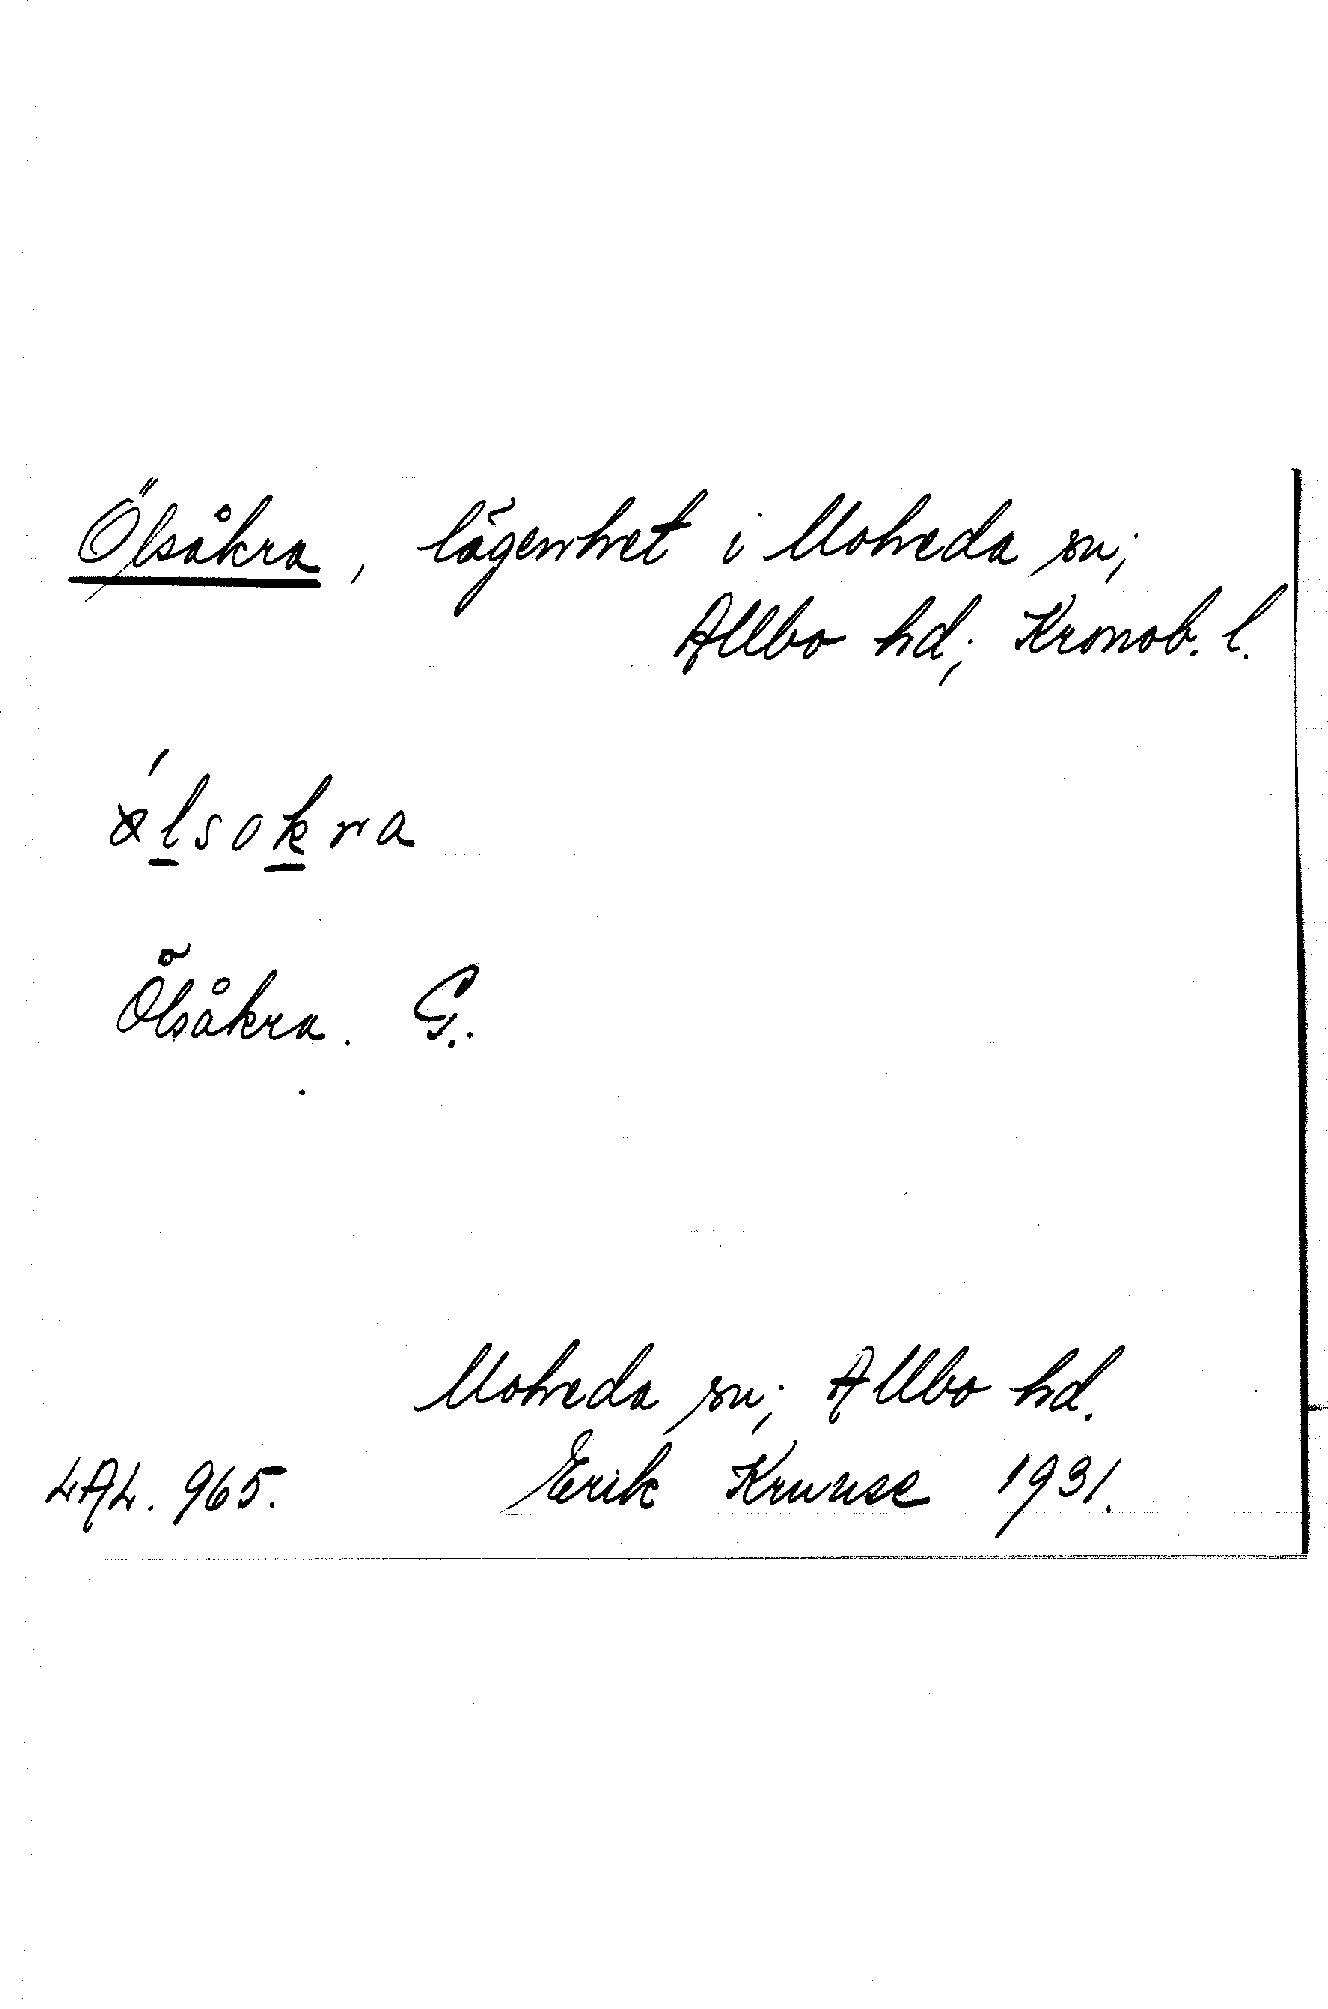 Ölsåkra, lägenhet i Moheda sn;
Allbo hd; Kronob. l.
ølsokra
Ölsåkra. G.
Moheda sn; Allbo hd.
LAL. 965. Erik Kruuse 1931.